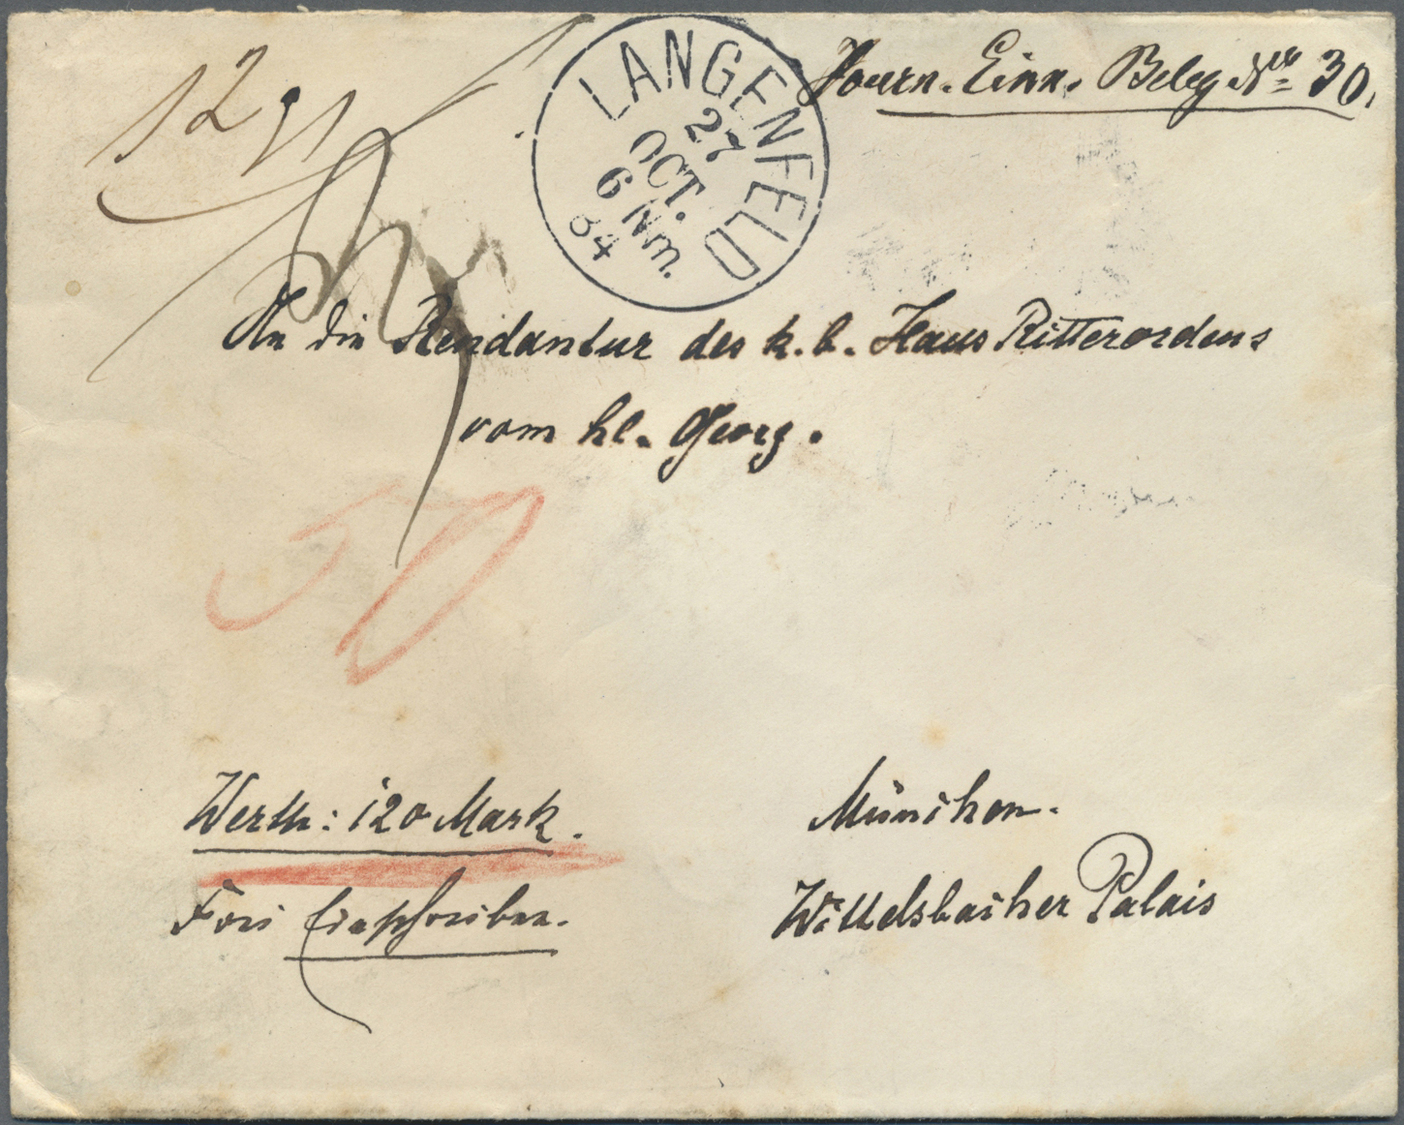 Journ. Einn. Beleg Nro 30.
12
LANGENFELD
27
OCT.
6 Nm.
84
An die Rendantur des k. b. Haus Ritterordens
vom hl. Georg.
50
Werth: 120 Mark.
München.
Frei Einschreiben.
Wittelsbacher Palais